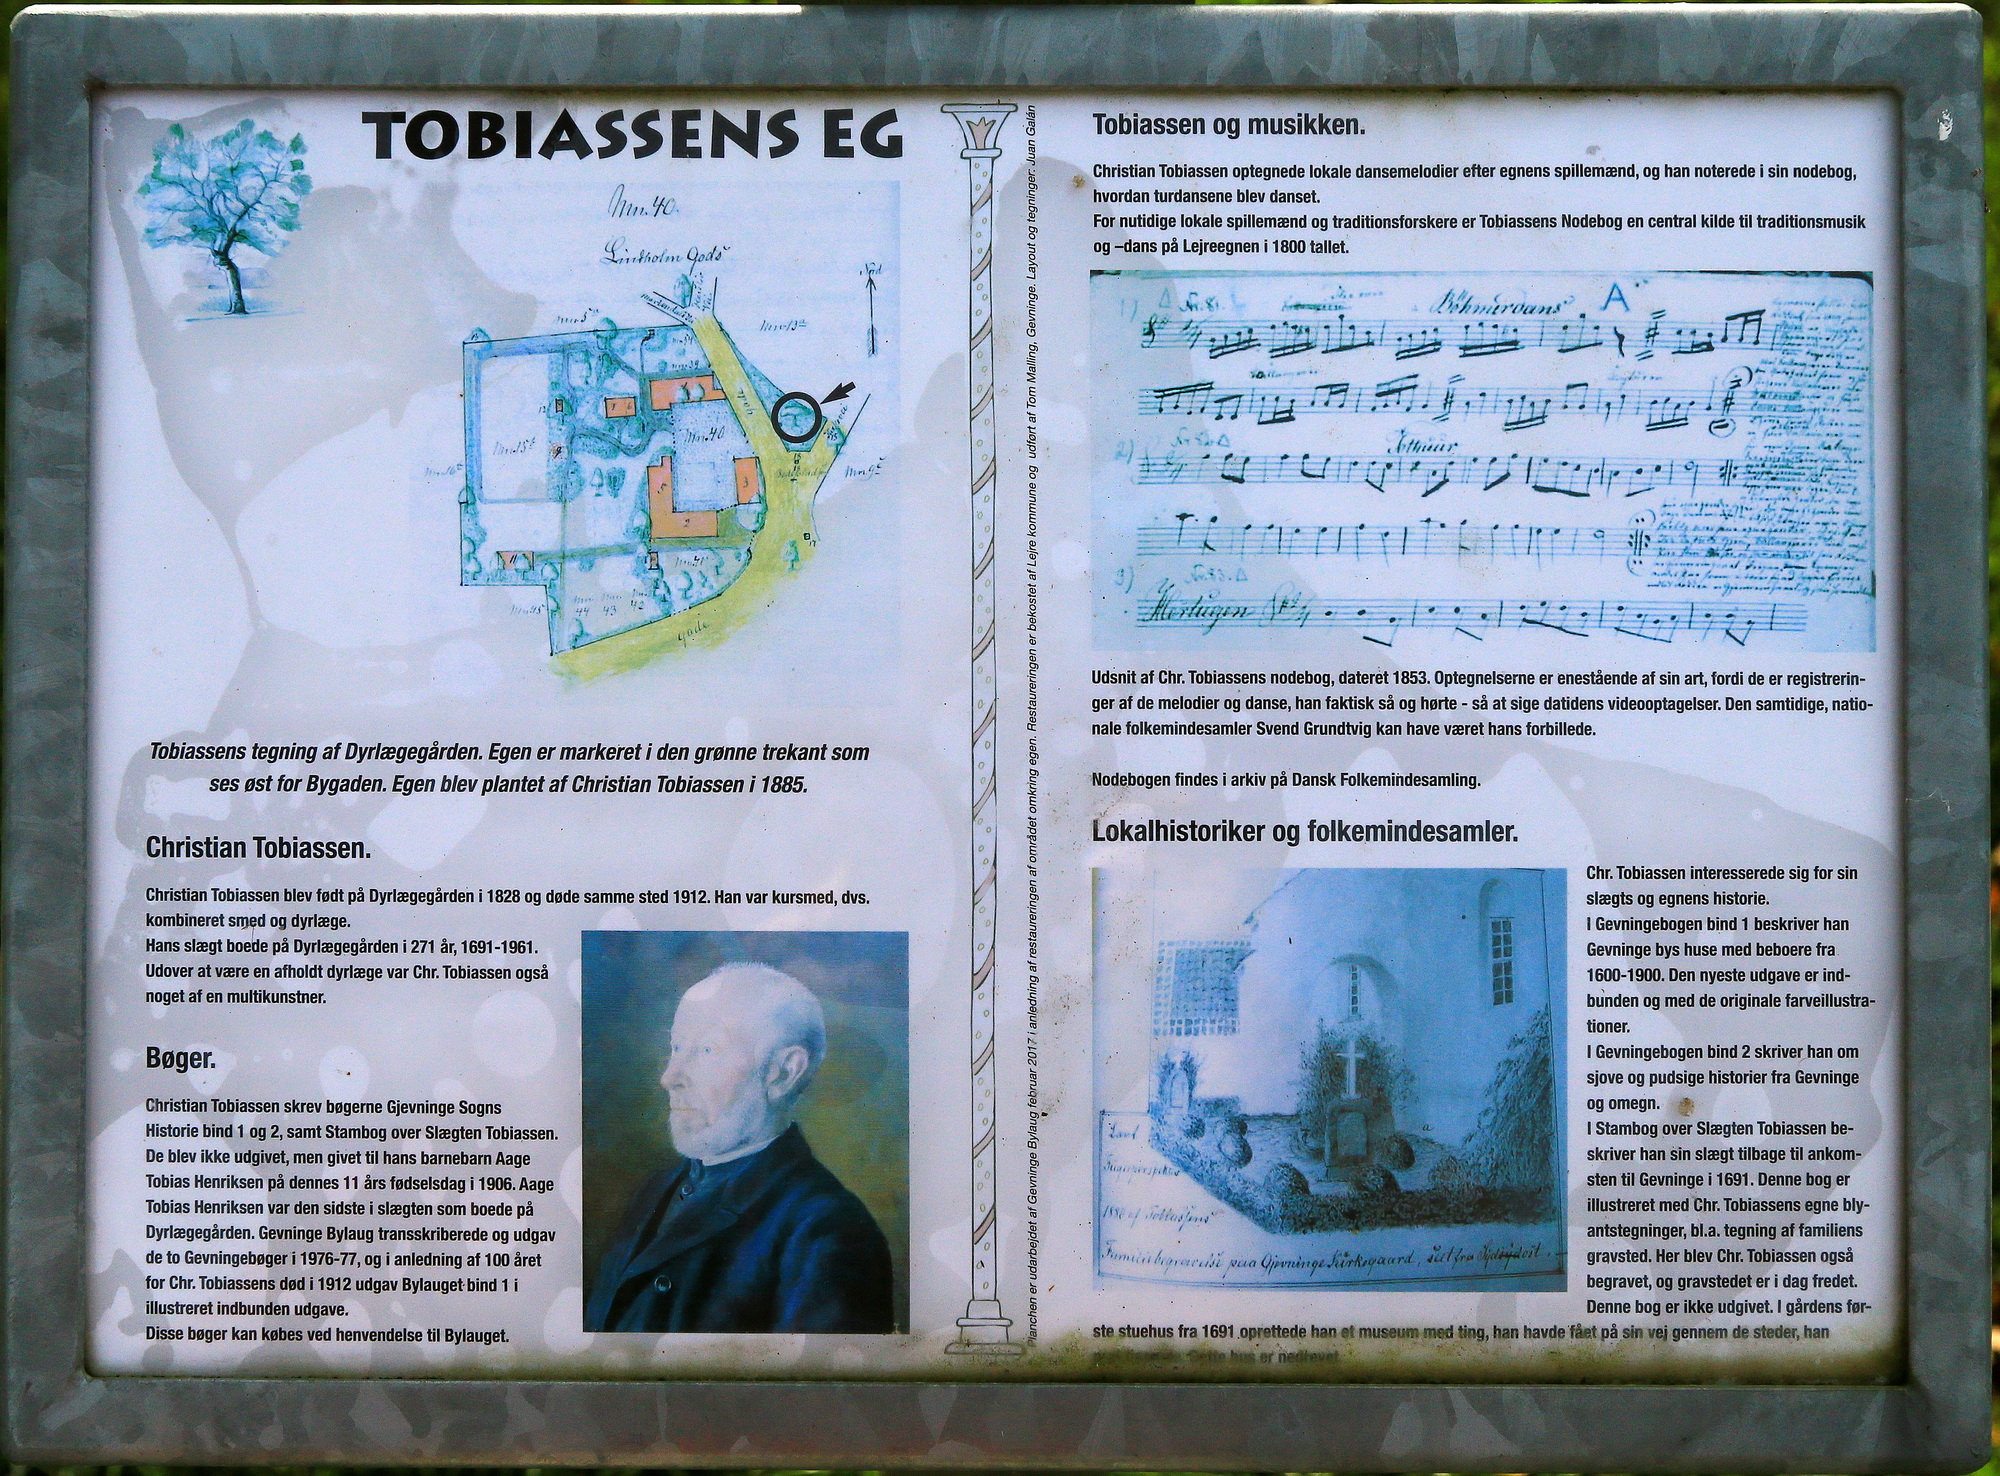 TOBIASSENS EG
Mn. 40.
Lindholm Gods
Nord
Mn. 40
gade
gade
Tobiassens tegning af Dyrlægegården. Egen er markeret i den grønne trekant som
ses øst for Bygaden. Egen blev plantet af Christian Tobiassen i 1885.
Christian Tobiassen.
Christian Tobiassen blev født på Dyrlægegården i 1828 og døde samme sted 1912. Han var kursmed, dvs.
kombineret smed og dyrlæge.
Hans slægt boede på Dyrlægegården i 271 år, 1691-1961.
Udover at være en afholdt dyrlæge var Chr. Tobiassen også
noget af en multikunstner.
Bøger.
Christian Tobiassen skrev bøgerne Gjevninge Sogns
Historie bind 1 og 2, samt Stambog over Slægten Tobiassen.
De blev ikke udgivet, men givet til hans barnebarn Aage
Tobias Henriksen på dennes 11 års fødselsdag i 1906. Aage
Tobias Henriksen var den sidste i slægten som boede på
Dyrlægegården. Gevninge Bylaug transskriberede og udgav
de to Gevningebøger i 1976-77, og i anledning af 100 året
for Chr. Tobiassens død i 1912 udgav Bylauget bind 1 i
illustreret indbunden udgave.
Disse bøger kan købes ved henvendelse til Bylauget.
Planchen er udarbejdet af Gevninge Bylaug februar 2017 i anledning af restaureringen af området omkring egen. Restaureringen er bekostet af Lejre kommune og udført af Tom Malling, Gevninge. Layout og tegninger: Juan Galán
Tobiassen og musikken.
Christian Tobiassen optegnede lokale dansemelodier efter egnens spillemænd, og han noterede i sin nodebog,
hvordan turdansene blev danset.
For nutidige lokale spillemænd og traditionsforskere er Tobiassens Nodebog en central kilde til traditionsmusik
og –dans på Lejreegnen i 1800 tallet.
1) Nr. 81. Böhmerdans A
2)
3)
Udsnit af Chr. Tobiassens nodebog, dateret 1853. Optegnelserne er enestående af sin art, fordi de er registrerin-
ger af de melodier og danse, han faktisk så og hørte - så at sige datidens videooptagelser. Den samtidige, natio-
nale folkemindesamler Svend Grundtvig kan have været hans forbillede.
Nodebogen findes i arkiv på Dansk Folkemindesamling.
Lokalhistoriker og folkemindesamler.
Familiebegravelse paa Gjevninge Kirkegaard, seet fra Sydsiden.
Chr. Tobiassen interesserede sig for sin
slægts og egnens historie.
I Gevningebogen bind 1 beskriver han
Gevninge bys huse med beboere fra
1600-1900. Den nyeste udgave er ind-
bunden og med de originale farveillustra-
tioner.
I Gevningebogen bind 2 skriver han om
sjove og pudsige historier fra Gevninge
og omegn.
I Stambog over Slægten Tobiassen be-
skriver han sin slægt tilbage til ankom-
sten til Gevninge i 1691. Denne bog er
illustreret med Chr. Tobiassens egne bly-
antstegninger, bl.a. tegning af familiens
gravsted. Her blev Chr. Tobiassen også
begravet, og gravstedet er i dag fredet.
Denne bog er ikke udgivet. I gårdens før-
ste stuehus fra 1691 oprettede han et museum med ting, han havde fået på sin vej gennem de steder, han
Dette hus er nedrevet